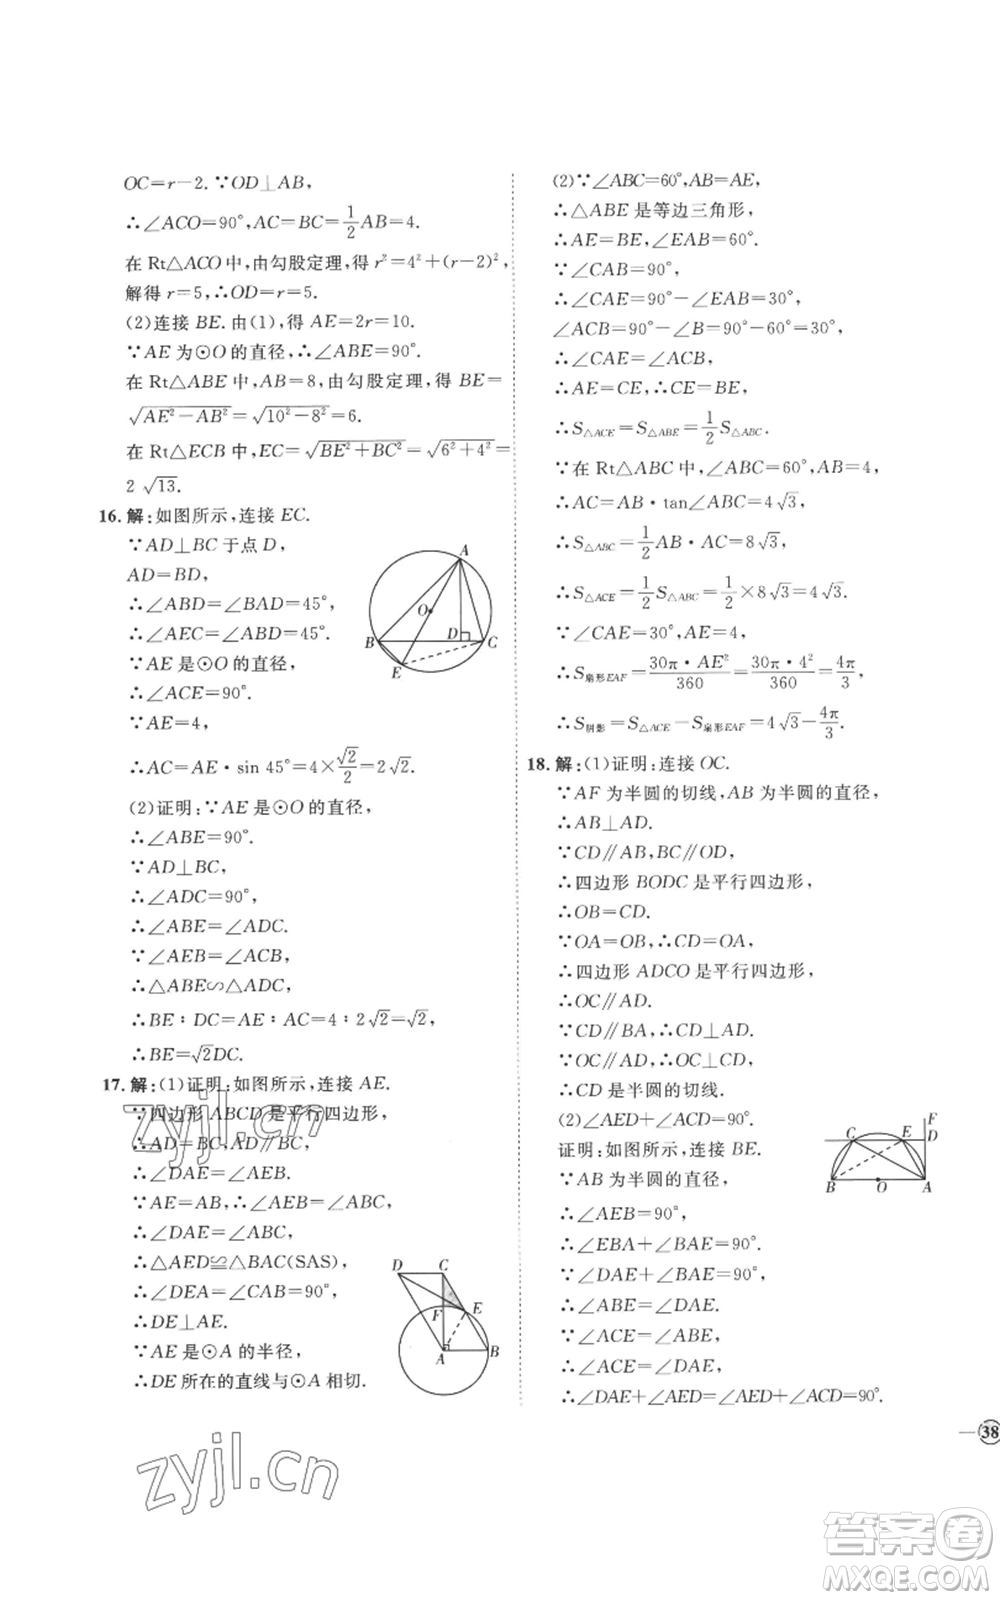 OC=r-2.∵OD⊥AB,
∴∠ACO=90°,AC=BC=1/2AB=4.
在 Rt△ACO 中,由勾股定理,得 r²=4²+(r-2)²,
解得 r=5,∴OD=r=5.
(2)连接 BE.由(1),得 AE=2r=10.
∵AE 为⊙O 的直径,∴∠ABE=90°.
在 Rt△ABE 中,AB=8,由勾股定理,得 BE=
√(AE²-AB²)=√(10²-8²)=6.
在 Rt△ECB 中,EC=√(BE²+BC²)=√(6²+4²)=
2√13.
16.解:如图所示,连接 EC.
∵AD⊥BC 于点 D,
AD=BD,
∴∠ABD=∠BAD=45°,
∴∠AEC=∠ABD=45°.
∵AE 是⊙O 的直径,
∴∠ACE=90°.
∵AE=4,
∴AC=AE·sin 45°=4×√2/2=2√2.
(2)证明:∵AE 是⊙O 的直径,
∴∠ABE=90°.
∵AD⊥BC,
∴∠ADC=90°,
∴∠ABE=∠ADC.
∵∠AEB=∠ACB,
∴△ABE∽△ADC,
∴BE∶DC=AE∶AC=4∶2√2=√2,
∴BE=√2DC.
A
O
B
D
C
E
17.解:(1)证明:如图所示,连接 AE.
∵四边形 ABCD 是平行四边形,
∴AD=BC,AD∥BC,
∴∠DAE=∠AEB.
∵AE=AB,∴∠AEB=∠ABC,
∴∠DAE=∠ABC,
∴△AED≌△BAC(SAS),
∴∠DEA=∠CAB=90°,
∴DE⊥AE.
∵AE 是⊙A 的半径,
∴DE 所在的直线与⊙A 相切.
D C
F E
A B
(2)∵∠ABC=60°,AB=AE,
∴△ABE 是等边三角形,
∴AE=BE,∠EAB=60°.
∵∠CAB=90°,
∴∠CAE=90°-∠EAB=30°,
∠ACB=90°-∠B=90°-60°=30°,
∴∠CAE=∠ACB,
∴AE=CE,∴CE=BE,
∴S△ACE=S△ABE=1/2S△ABC.
∵在 Rt△ABC 中,∠ABC=60°,AB=4,
∴AC=AB·tan∠ABC=4√3,
∴S△ABC=1/2AB·AC=8√3,
∴S△ACE=1/2S△ABC=1/2×8√3=4√3.
∵∠CAE=30°,AE=4,
∴S扇形EAF=30π·AE²/360=30π·4²/360=4π/3,
∴S阴影=S△ACE-S扇形EAF=4√3-4π/3.
18.解:(1)证明:连接 OC.
∵AF 为半圆的切线,AB 为半圆的直径,
∴AB⊥AD.
∵CD∥AB,BC∥OD,
∴四边形 BODC 是平行四边形,
∴OB=CD.
∵OA=OB,∴CD=OA,
∴四边形 ADCO 是平行四边形,
∴OC∥AD.
∵CD∥BA,∴CD⊥AD.
∵OC∥AD,∴OC⊥CD,
∴CD 是半圆的切线.
(2)∠AED+∠ACD=90°.
证明:如图所示,连接 BE.
∵AB 为半圆的直径,
∴∠AEB=90°,
∴∠EBA+∠BAE=90°.
∵∠DAE+∠BAE=90°,
∴∠ABE=∠DAE.
∵∠ACE=∠ABE,
∴∠ACE=∠DAE.
∴∠DAE+∠AED=∠AED+∠ACD=90°.
F
C E D
B O A
38
zyjl.cn
zyjl.cn
答案卷
MXQE.COM